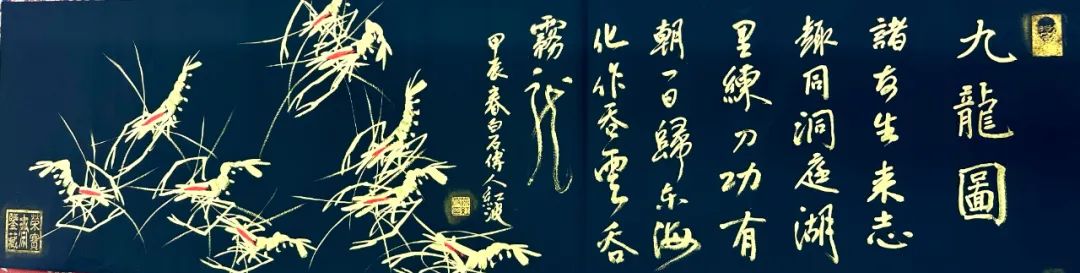 九龍圖
諸友生来志
趣同洞庭湖
里練刀功有
朝一日歸东海
化作吞雲吞
霧龍
甲辰春白石傳人紅波
榮寶
鑒藏